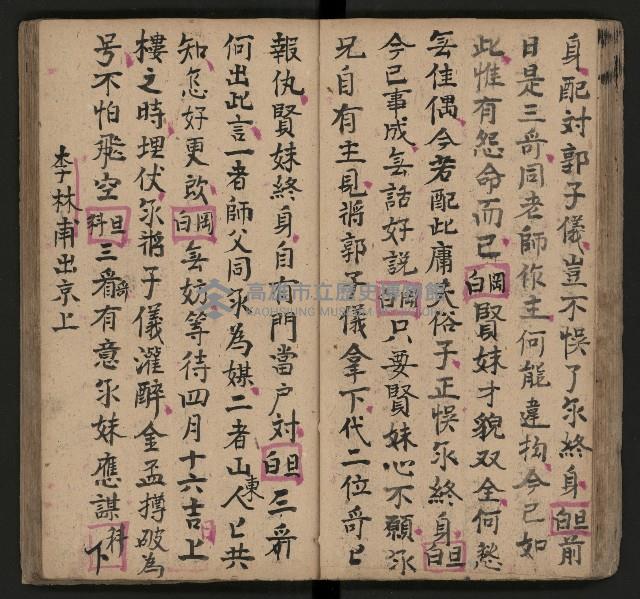 身配対郭子儀豈不悞了尔終身旦白前
日是三哥同老師作主何能違拗今已如
此惟有怨命而已岡白賢妹才貌双全何愁
無佳偶今若配此庸夫俗子正悞尔終身旦白
今已事成無話好說岡白只要賢妹心不願為
兄自有主見将郭子儀拿下代二位哥已
報仇賢妹終身自有門當户対旦白三哥
何出此言一者師父同尔為媒二者山東人已共
知怎好更改岡白無妨等待四月十六吉上
樓之時埋伏尔将子儀灌醉金盃摔破為
号不怕飛空旦科三哥看有意尔妹應謀科下
李林甫出京上
高雄市立歷史博物館
KAOHSIUNG MUSEUM